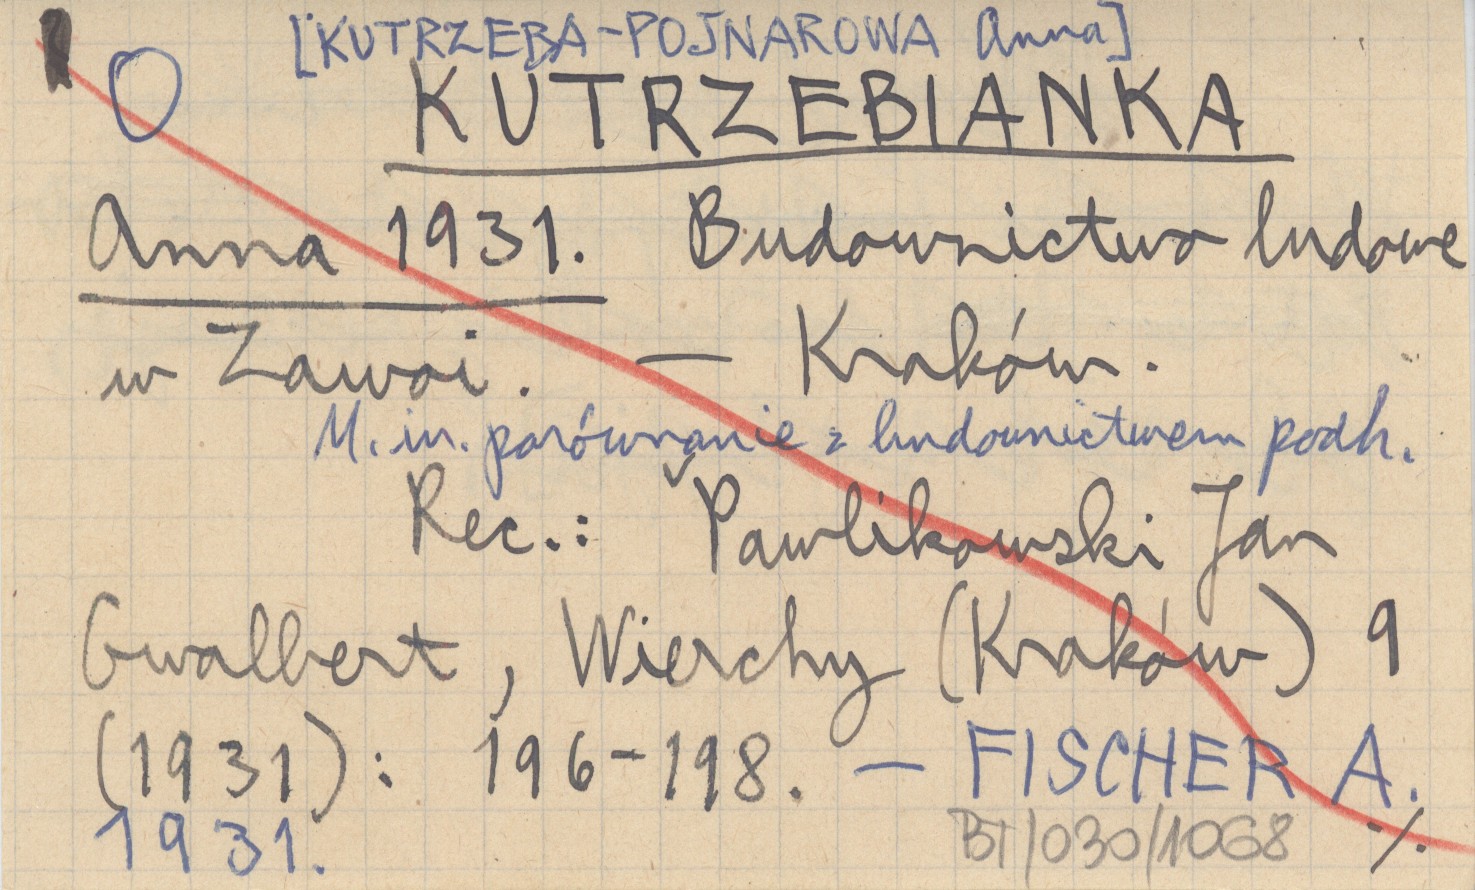 [KUTRZEBA-POJNAROWA Anna]
KUTRZEBIANKA
Anna 1931. Budownictwo ludowe
w Zawoi. — Kraków.
M. in. porównanie z budownictwem podh.
Rec.: Pawlikowski Jan
Gwalbert, Wierchy (Kraków) 9
(1931): 196-198. — FISCHER A.
1931. BT/030/1068 ./.